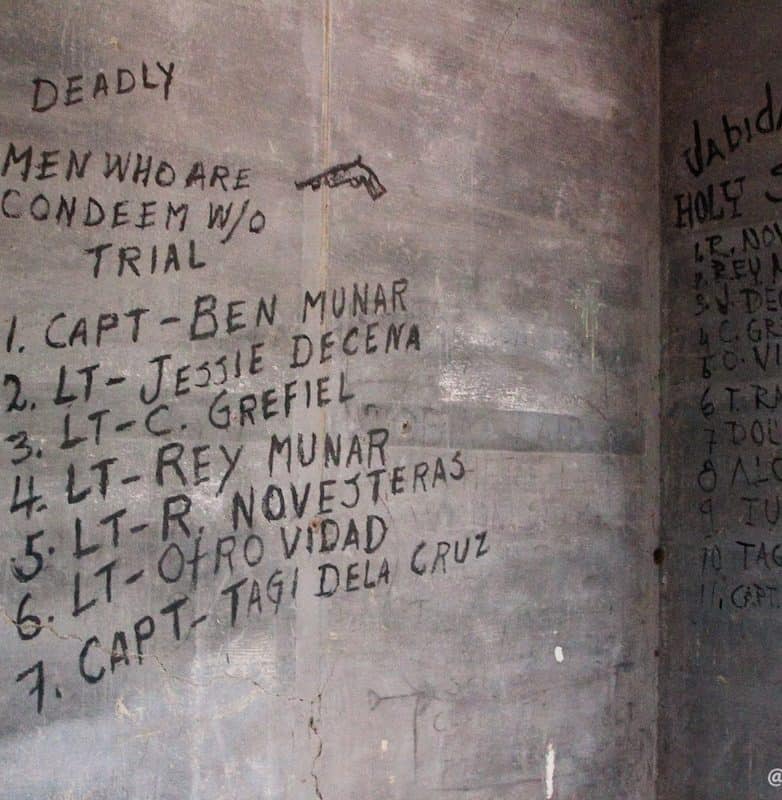 DEADLY
MEN WHO ARE
CONDEEM W/O
TRIAL
1. CAPT-BEN MUNAR
2. LT-JESSIE DECENA
3. LT-C. GREFIEL
4. LT-REY MUNAR
5. LT-R. NOVESTERAS
6. LT-OTRO VIDAD
7. CAPT-TAGI DELA CRUZ
HOLY
1. R.
2. REY
3. J.
4 C.
5 O.
6 T.
7
8
9
10
11. CAPT
@